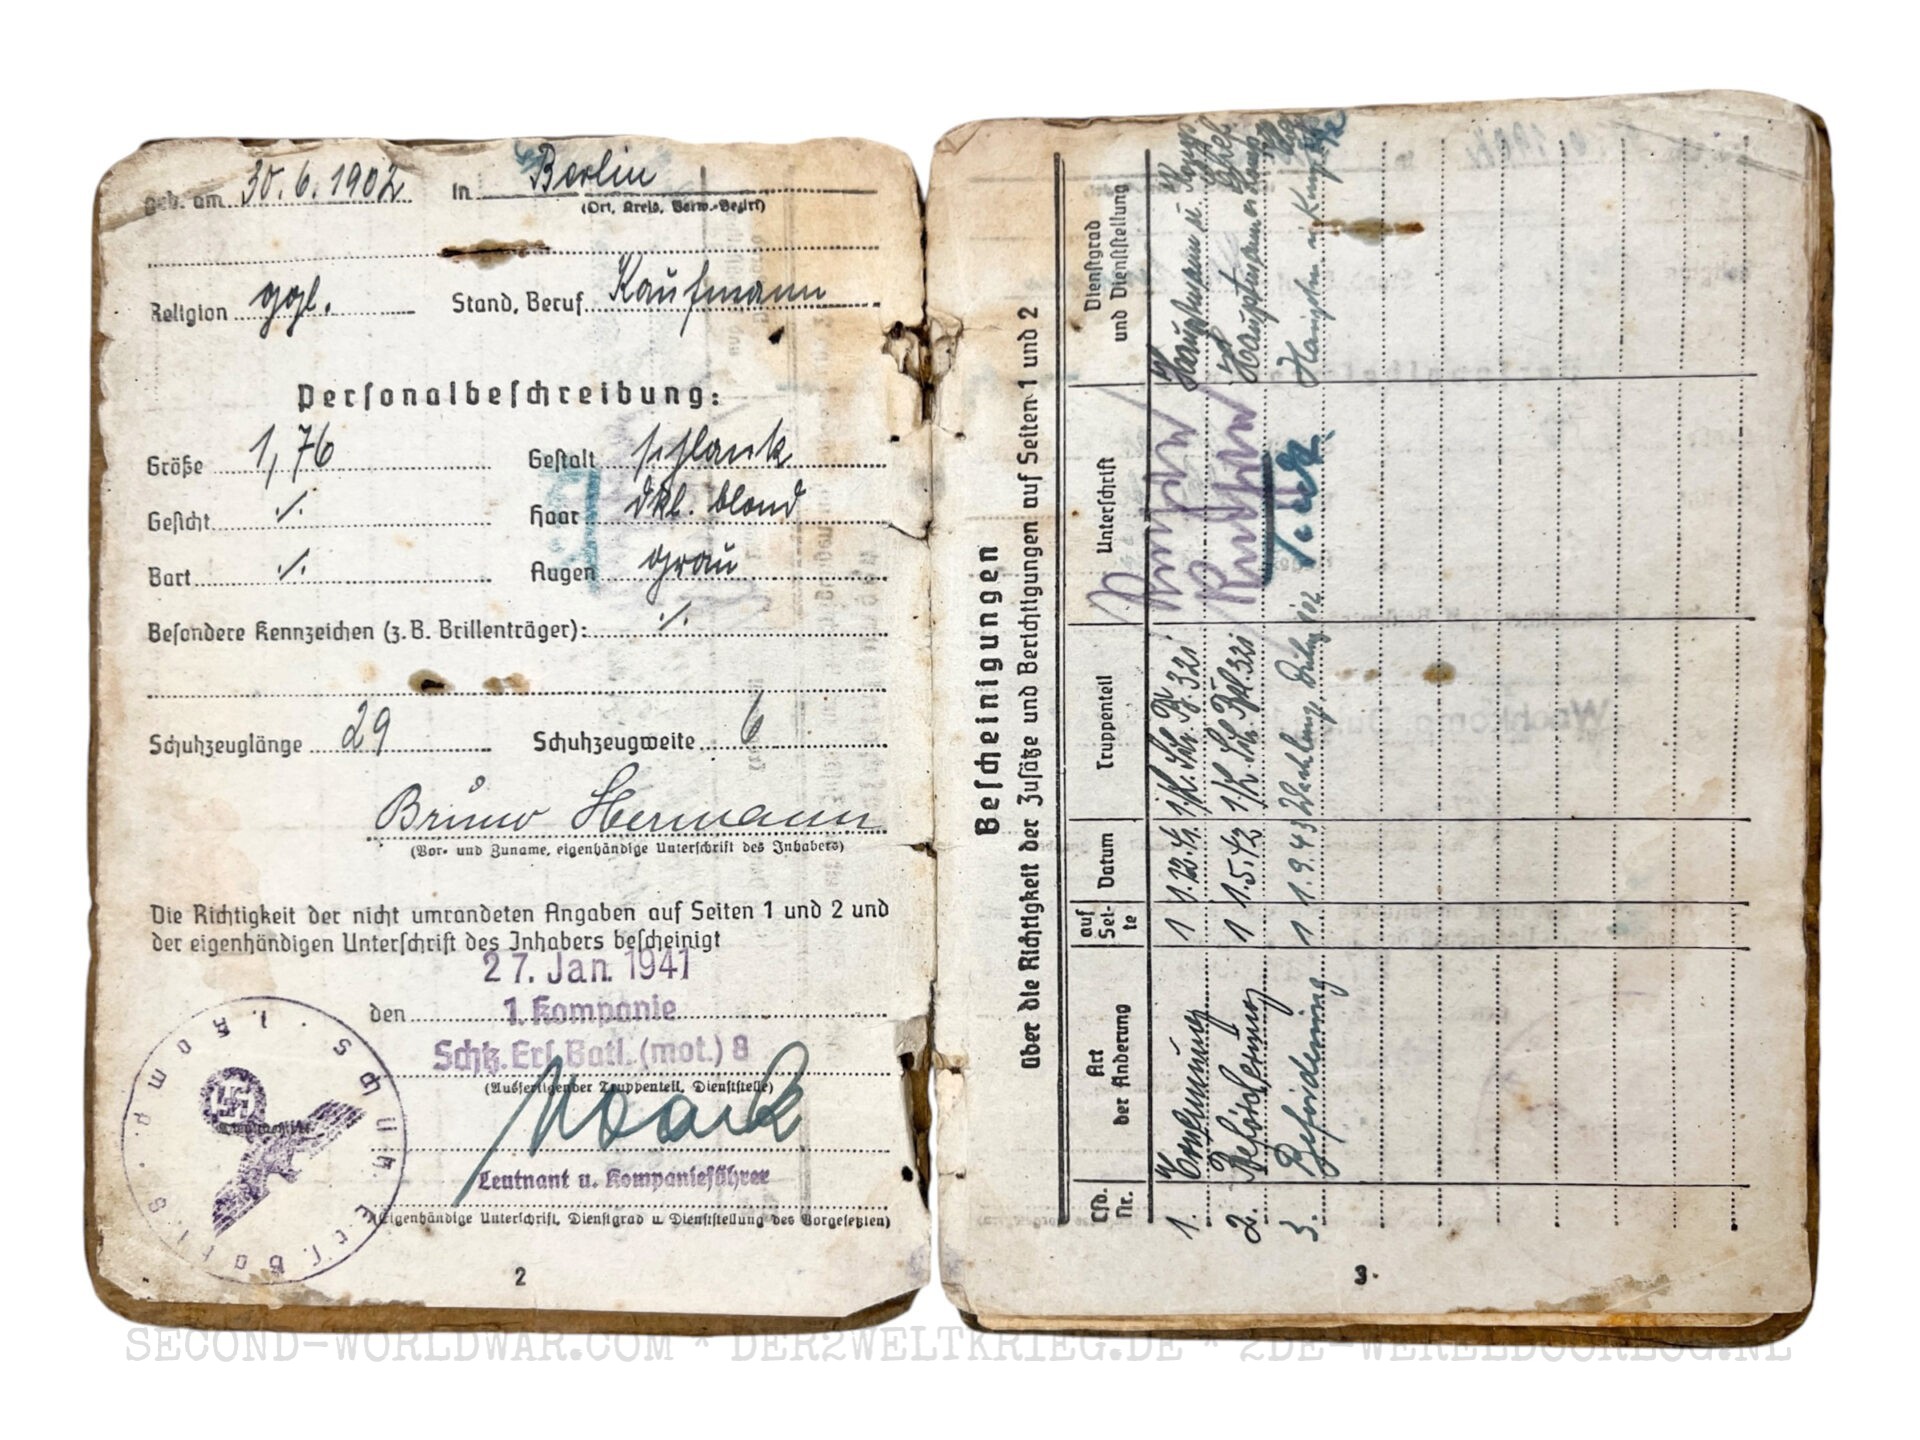 geb. am 30.6.1902 in Berlin
(Ort, Kreis, Verw.-Bezirk)
Religion ggl. Stand, Beruf Kaufmann
Personalbeschreibung:
Größe 1,76 Gestalt schlank
Gesicht ./. Haar dkl. blond
Bart ./. Augen grau
Besondere Kennzeichen (z.B. Brillenträger): ./.
Schuhzeuglänge 29 Schuhzeugweite 6
Bruno Hermann
(Vor- und Zuname, eigenhändige Unterschrift des Inhabers)
Die Richtigkeit der nicht umrandeten Angaben auf Seiten 1 und 2 und
der eigenhändigen Unterschrift des Inhabers bescheinigt
27. Jan. 1941
den 1. Kompanie
Schtz. Ers. Batl. (mot.) 8
(Ausfertigender Truppenteil, Dienststelle)
Leutnant u. Kompanieführer
(Eigenhändige Unterschrift, Dienstgrad u Dienststellung des Vorgesetzten)
2
Bescheinigungen
über die Richtigkeit der Zusätze und Berichtigungen auf Seiten 1 und 2
Lfd. Nr. Art der Änderung auf Seite Datum Truppenteil Unterschrift Dienstgrad und Dienststellung
1. Ernennung 1 1.12.41 Hauptmann u. Komp
2. Beförderung 1 1.5.42 Hauptmann u. Komp Chef
3. Beförderung 1 1.9.43
3
SECOND-WORLDWAR.COM * DER2WELTKRIEG.DE * 2DE-WERELDOORLOG.NL